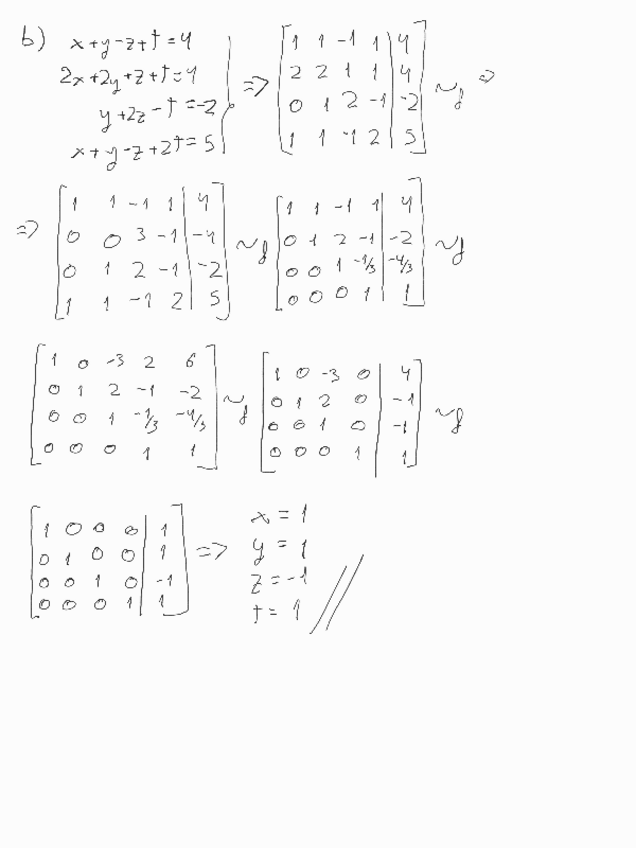 b) x+y-z+t=4
2x+2y+z+t=4
y+2z-t=-2
x+y-z+2t=5
=> [1 1 -1 1 | 4] ~f =>
[2 2 1 1 | 4]
[0 1 2 -1 | -2]
[1 1 -1 2 | 5]
=> [1 1 -1 1 | 4] ~f
[0 0 3 -1 | -4]
[0 1 2 -1 | -2]
[1 1 -1 2 | 5]
[1 1 -1 1 | 4] ~f
[0 1 2 -1 | -2]
[0 0 1 -1/3 | -4/3]
[0 0 0 1 | 1]
[1 0 -3 2 6] ~f
[0 1 2 -1 -2]
[0 0 1 -1/3 -4/3]
[0 0 0 1 1]
[1 0 -3 0 | 4] ~f
[0 1 2 0 | -1]
[0 0 1 0 | -1]
[0 0 0 1 | 1]
[1 0 0 0 | 1]
[0 1 0 0 | 1] =>
[0 0 1 0 | -1]
[0 0 0 1 | 1]
x = 1
y = 1
z = -1
t = 1 //